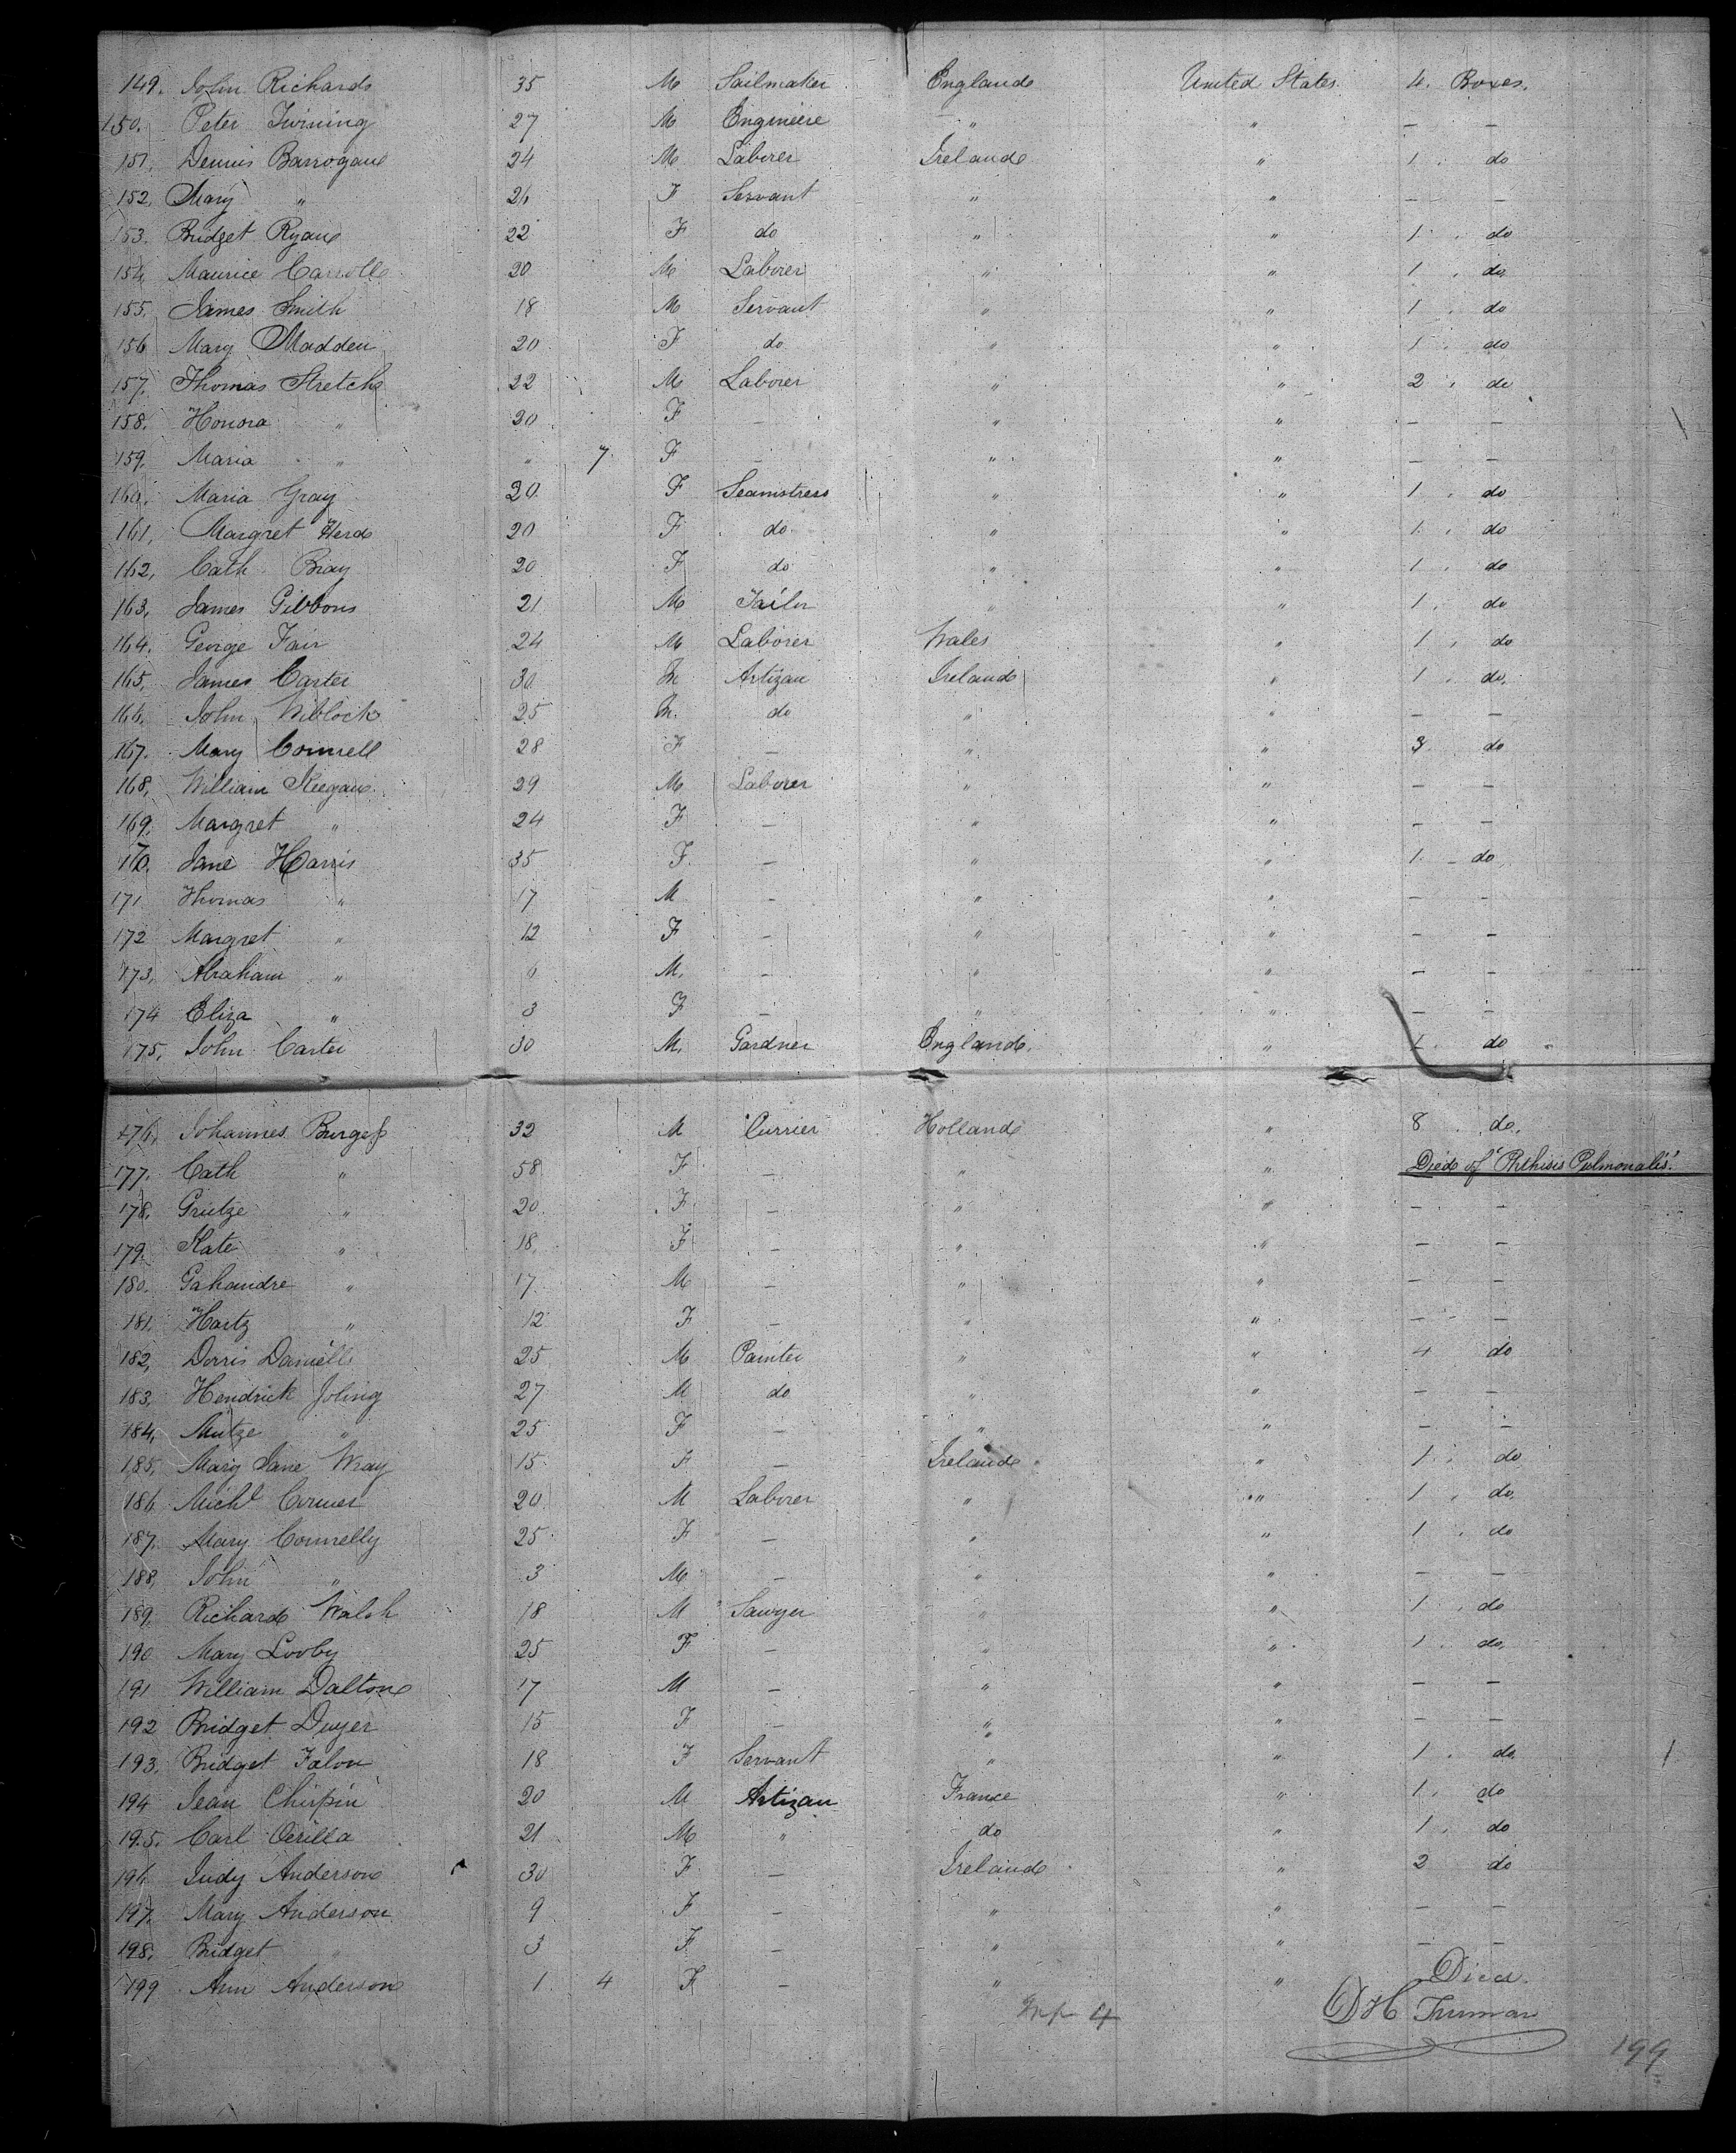 149. John Richards 35 M Sailmaker England United States 4. Boxes.
150. Peter Twining 27 M Engineere " " — —
151. Dennis Barrogan 24 M Laborer Ireland " 1. do
152. Mary " 26 F Servant " " — —
153. Bridget Ryan 22 F do " " 1. do
154. Maurice Carroll 20 M Laborer " " 1. do
155. James Smith 18 M Servant " " 1. do
156 Mary Madden 20 F do " " 1. do
157. Thomas Stretch 22 M Laborer " " 2. do
158. Honora " 20 F — " " — —
159. Maria " " 7 F — " " — —
160. Maria Gray 20 F Seamstress " " 1. do
161. Margret Herd 20 F do " " 1. do
162. Cath Bray 20 F do " " 1. do
163. James Gibbons 21 M Tailor " " 1. do
164. George Fair 24 M Laborer Wales " 1. do
165. James Carter 30 M Artizan Ireland " 1. do.
166. John Wiblock 25 M. do " " — —
167. Mary Connell 28 F — " " 3. do
168. William Keegan 29 M Laborer " " — —
169. Margret " 24 F — " " — —
170. Jane Harris 35 F — " " 1. do
171 Thomas " 17 M — " " — —
172 Margret " 12 F — " " — —
173. Abraham " 6 M. — " " — —
174 Eliza " 3 F — " " — —
175. John Carter 30 M. Gardner England. " 1. do
176. Johannes Burgess 32 M Currier Holland " 8. do.
177. Cath " 58 F — " " Died of "Phthisis Pulmonalis."
178. Grietze " 20 F — " " — —
179. Kate " 18 F — " " — —
180. Gahandre " 17 M — " " — —
181. Hartz " 12 F — " " — —
182. Dorris Daniells 25 M Painter " " 4 do
183. Hendrick Joling 27 M do " " — —
184. Mutze " 25 F — " " — —
185. Mary Jane Wray 15 F — Ireland " 1. do
186 Michl Cormer 20 M Laborer " " 1. do.
187. Mary Connelly 25 F — " " 1. do
188. John " 3 M — " " — —
189. Richard Walsh 18 M Sawyer " " 1. do
190 Mary Looby 25 F — " " 1. do.
191 William Dalton 17 M — " " — —
192 Bridget Dwyer 15 F — " " — —
193. Bridget Falon 18 F Servant " " 1. do.
194 Jean Chirpin 20 M Artizan France " 1. do
195. Carl Oerilla 21 M " do " 1. do
196 Judy Anderson 30 F — Ireland " 2 do
197. Mary Anderson 9 F — " " — —
198. Bridget " 3 F — " " — —
199 Ann Anderson 1. 4 F — " " Died.
4 D H Truman
199